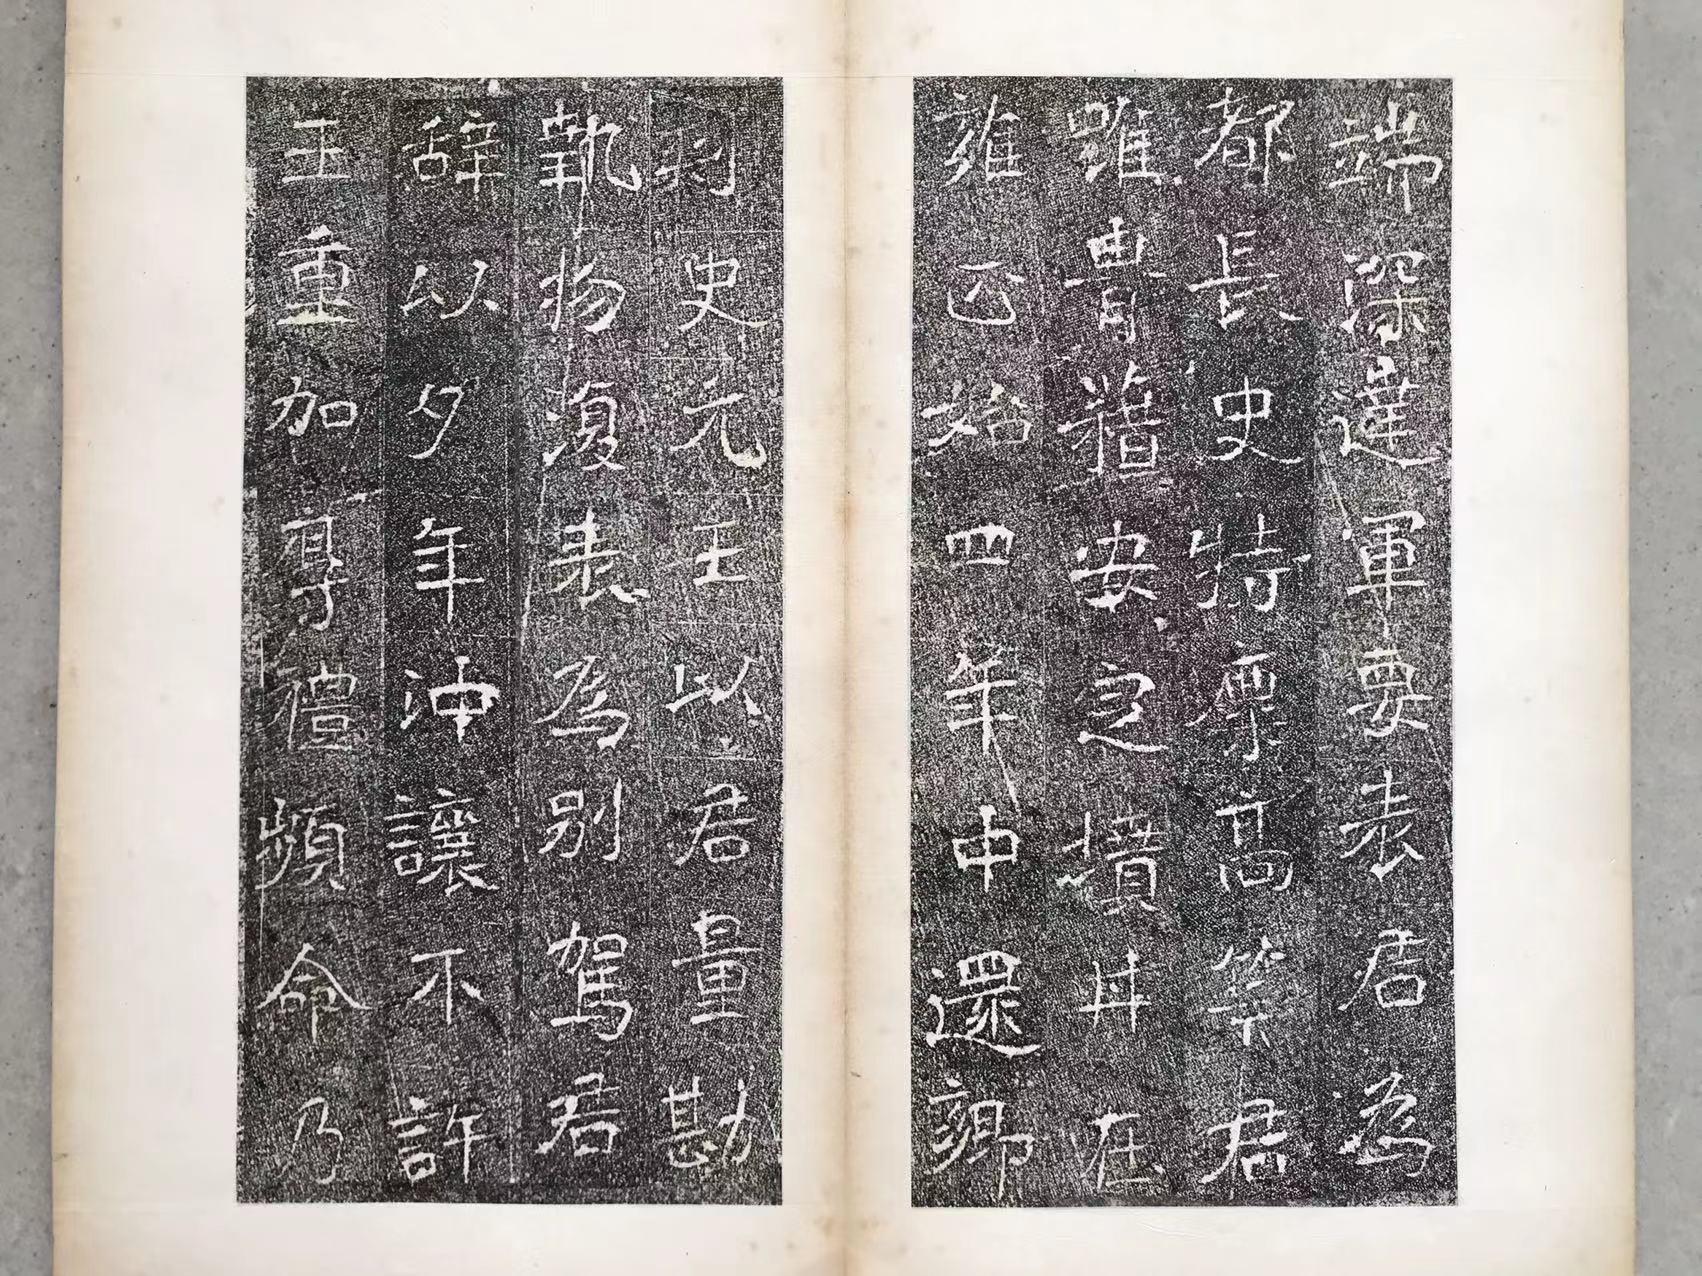 端深達軍要表君為
都長史特稟高筞君
雖胄籍安定墳井在
雍正始四年中還鄉
刺史元王以君量勘
執物復表為別駕君
辭以夕年沖讓不許
王重加尊禮頻命乃